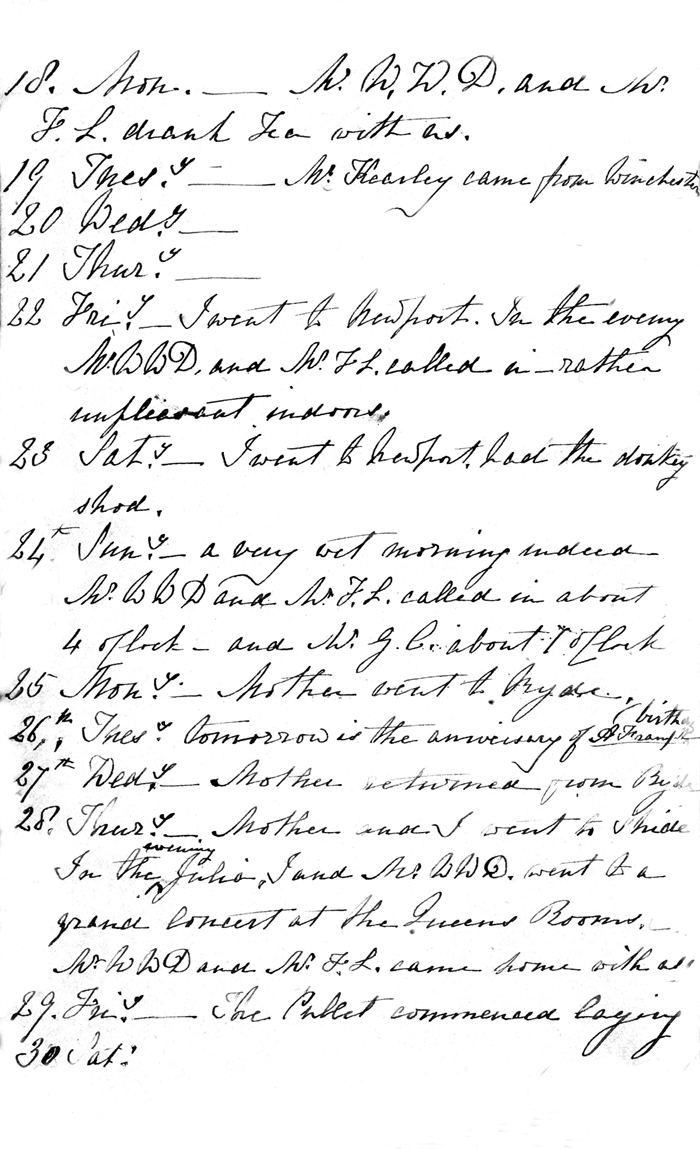 18. Mon. — Mr. W. W. D. and Mr.
F. L. drank Tea with us.
19 Tues.y — Mr. Kearley came from Winchester
20 Wed.y —
21 Thur.y —
22 Fri.y — I went to Newport. In the eveng
Mr. W W D. and Mr. F L. called in — rather
unpleasant indoors.
23 Sat.y — I went to Newport. had the donkey
shod.
24th Sun.y — a very wet morning indeed —
Mr. W W D and Mr. F. L. called in about
4 oClock — and Mr. G. C. about 7 oClock
25 Mon.y — Mother went to Ryde.
26th Tues.y tomorrow is the anniversary of A Frampt birthd
27th Wed.y — Mother returned from Ryde
28. Thur.y — Mother and I went to Shide
In the evening Julia, I and Mr. W W D. went to a
grand Concert at the Queens Rooms. —
Mr. W W D and Mr. F. L. came home with us.
29. Fri.y — The Pullet commenced laying
30 Sat.